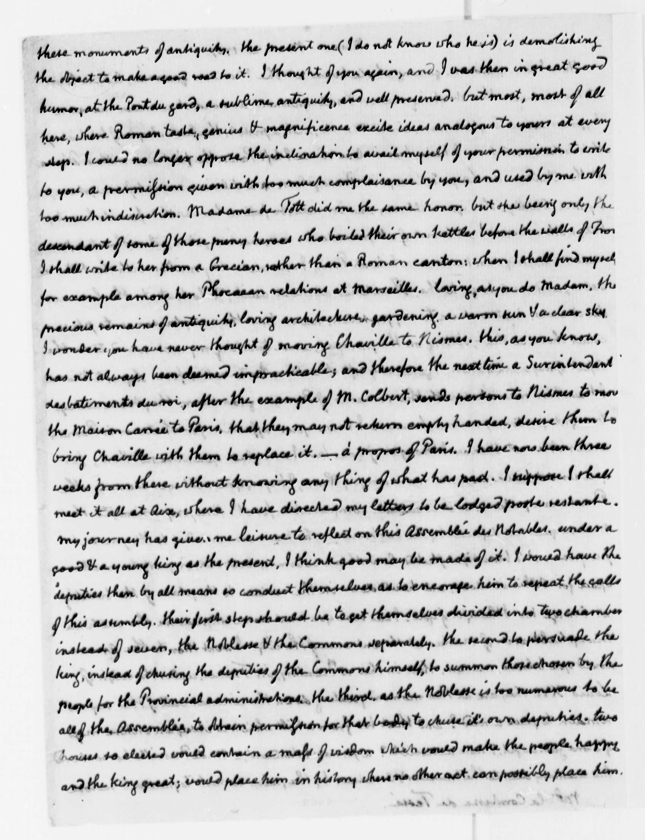 these monuments of antiquity. the present one (I do not know who he is) is demolishing
the object to make a good road to it. I thought of you again, and I was then in great good
humor, at the Pont du gard, a sublime antiquity, and well preserved. but most, most of all
here, where Roman taste, genius & magnificence excite ideas analogous to yours at every
step. I could no longer oppose the inclination to avail myself of your permission to write
to you, a permission given with too much complaisance by you, and used by me with
too much indiscretion. Madame de Tott did me the same honor. but she being only the
descendant of some of those puny heroes who boiled their own kettles before the walls of Troy
I shall write to her from a Grecian, rather than a Roman canton: when I shall find myself
for example among her Phocaean relations at Marseilles. loving, as you do Madam, the
precious remains of antiquity, loving architecture, gardening, a warm sun & a clear sky,
I wonder you have never thought of moving Chaville to Nismes. this, as you know,
has not always been deemed impracticable; and therefore the next time a Surintendant
des batiments du roi, after the example of M. Colbert, sends persons to Nismes to move
the Maison Carrée to Paris, that they may not return empty handed, desire them to
bring Chaville with them to replace it. — à propos of Paris. I have now been three
weeks from there without knowing any thing of what has past. I suppose I shall
meet it all at Aix, where I have directed my letters to be lodged poste restante.
my journey has given me leisure to reflect on this Assemblée des Notables. under a
good & a young king as the present, I think good may be made of it. I would have the
deputies then by all means so conduct themselves as to encorage him to repeat the calls
of this assembly. their first step should be to get themselves divided into two chambers
instead of seven, the Noblesse & the Commons separately. the second, to persuade the
king, instead of chusing the deputies of the Commons himself, to summon those chosen by the
people for the Provincial administrations. the third, as the Noblesse is too numerous to be
all of the Assemblée, to obtain permission for that body to chuse it's own deputies. two
houses so elected would contain a mass of wisdom which would make the people happy,
and the king great; would place him in history where no other act can possibly place him.
la Comtesse de Tessé